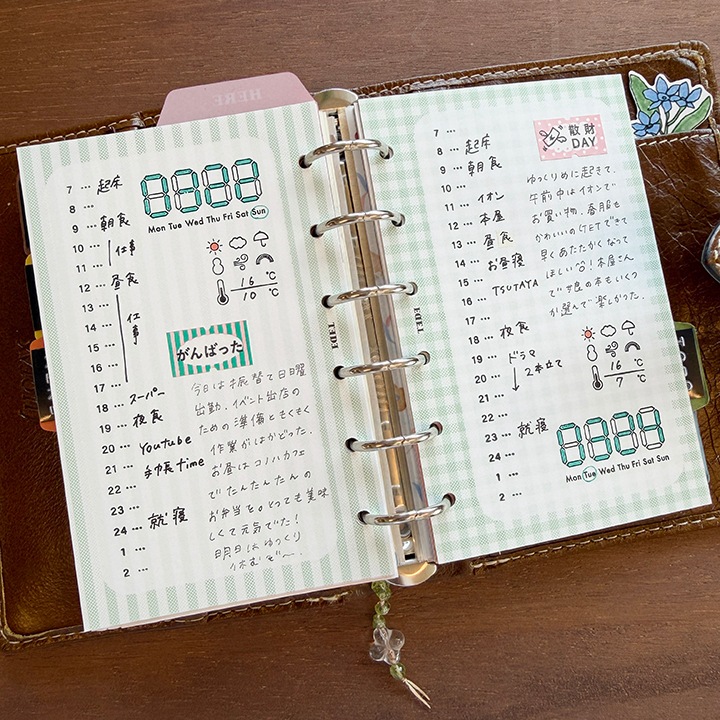 HERE
7 … 起床
8 …
9 … 朝食
10 … 仕事
11 …
12 … 昼食
13 …
14 … 仕事
15 …
16 …
17 …
18 … スーパー
19 … 夜食
20 … Youtube
21 … 手帳time
22 …
23 …
24 … 就寝
1 …
2 …
Mon Tue Wed Thu Fri Sat Sun
16 ℃
10 ℃
がんばった
今日は振替で日曜
出勤。イベント出店の
ための準備ともくもく
作業がはかどった。
お昼はコノハカフェ
でたんたんたんの
お弁当を。とっても美味
しくて元気でた!
明日はゆっくり
休むぞ〜。
7 …
8 … 起床
9 … 朝食
10 …
11 … イオン
12 … 本屋
13 … 昼食
14 … お昼寝
15 … TSUTAYA
16 …
17 …
18 … 夜食
19 … ドラマ
20 … 2本立て
21 …
22 …
23 … 就寝
24 …
1 …
2 …
散財
DAY
ゆっくりめに起きて、
午前中はイオンで
お買い物。春服も
かわいいのGETできて
早くあたたかくなって
ほしい!本屋さん
で の本もいくつ
か選んで楽しかった。
16 ℃
7 ℃
Mon Tue Wed Thu Fri Sat Sun